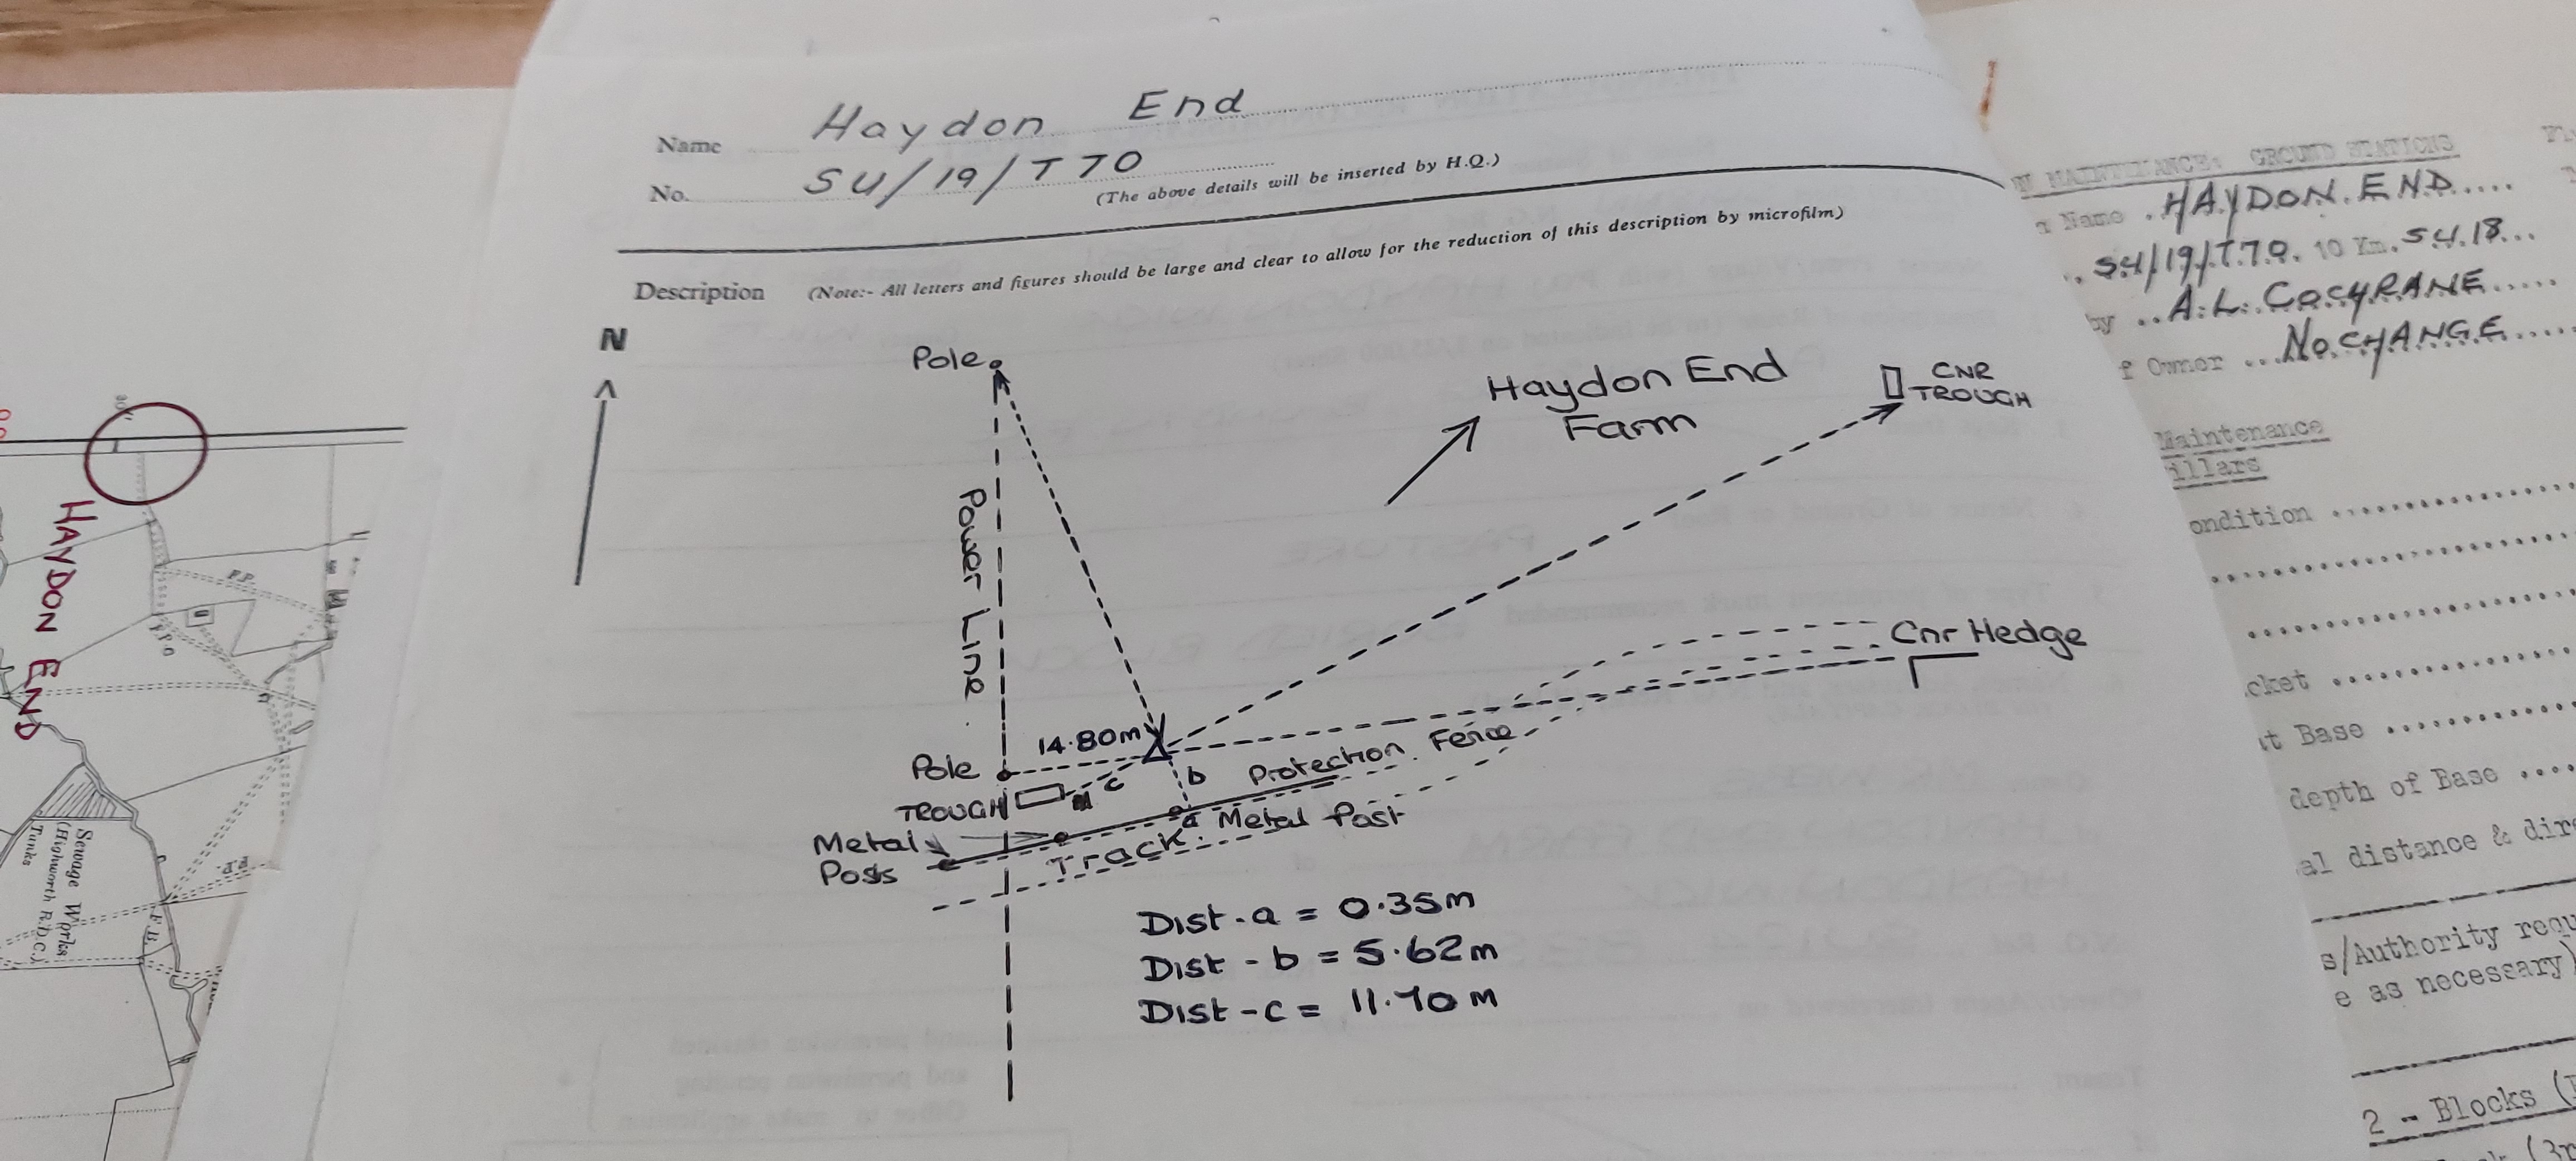 Name Haydon End
No. SU/19/T70
(The above details will be inserted by H.Q.)
Description (Note:- All letters and figures should be large and clear to allow for the reduction of this description by microfilm)
N
Pole
Haydon End
Farm
CNR
TROUGH
Power Line
Cnr Hedge
14.80m
Pole
b
Protection Fence
c
TROUGH
a Metal Post
Metal
Posts
Track
Dist - a = 0.35m
Dist - b = 5.62m
Dist - c = 11.70m
HAYDON END
F.P.
Sewage Works
(Highworth R.D.C.)
Tanks
F.B.
MAINTENANCE: GROUND STATIONS
Name HAYDON END
SU/19/T70. 10 Km. SU 18
by A.L. COCHRANE
Owner NO CHANGE
Maintenance
illars
ondition
cket
t Base
depth of Base
al distance & dir
s/Authority requ
e as necessary)
2 - Blocks